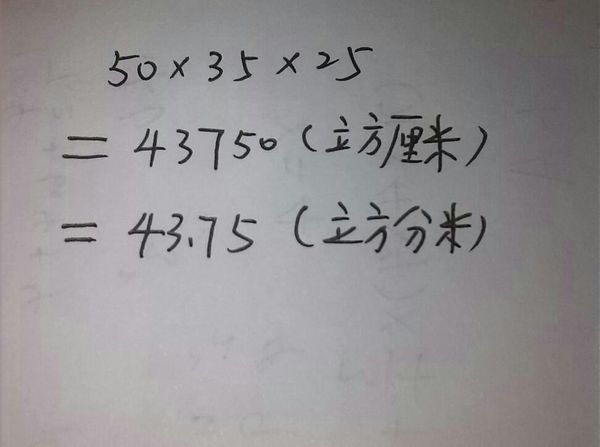 50×35×25
=43750(立方厘米)
=43.75(立方分米)